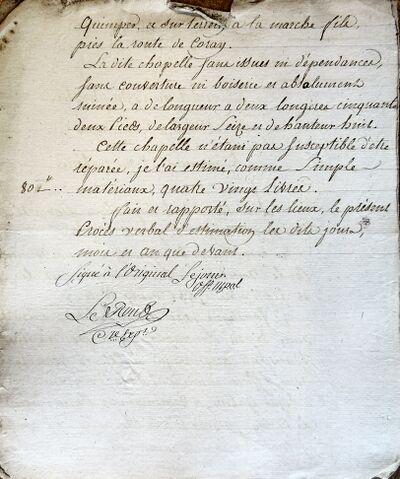 Quimper, a sur terrein à la marche
près la route de Coray.
La dite chapelle sans issues ni dépendances,
sans couverture ni boiserie et absolument
ruinée, a de longueur a deux longeres cinquante
deux pieds, de largeur Seize et de hauteur huit.
Cette chapelle n'étant pas Susceptible d'être
réparée, je l'ai estimé, comme Simple
80 ₶... matériaux, quatre vingt livres.
fait et rapporté, Sur les lieux, le présent
Procès verbal d'estimation les dits jours,
mois et an que devant.
Signé à l'Original Lejeune
off. mpal
Le